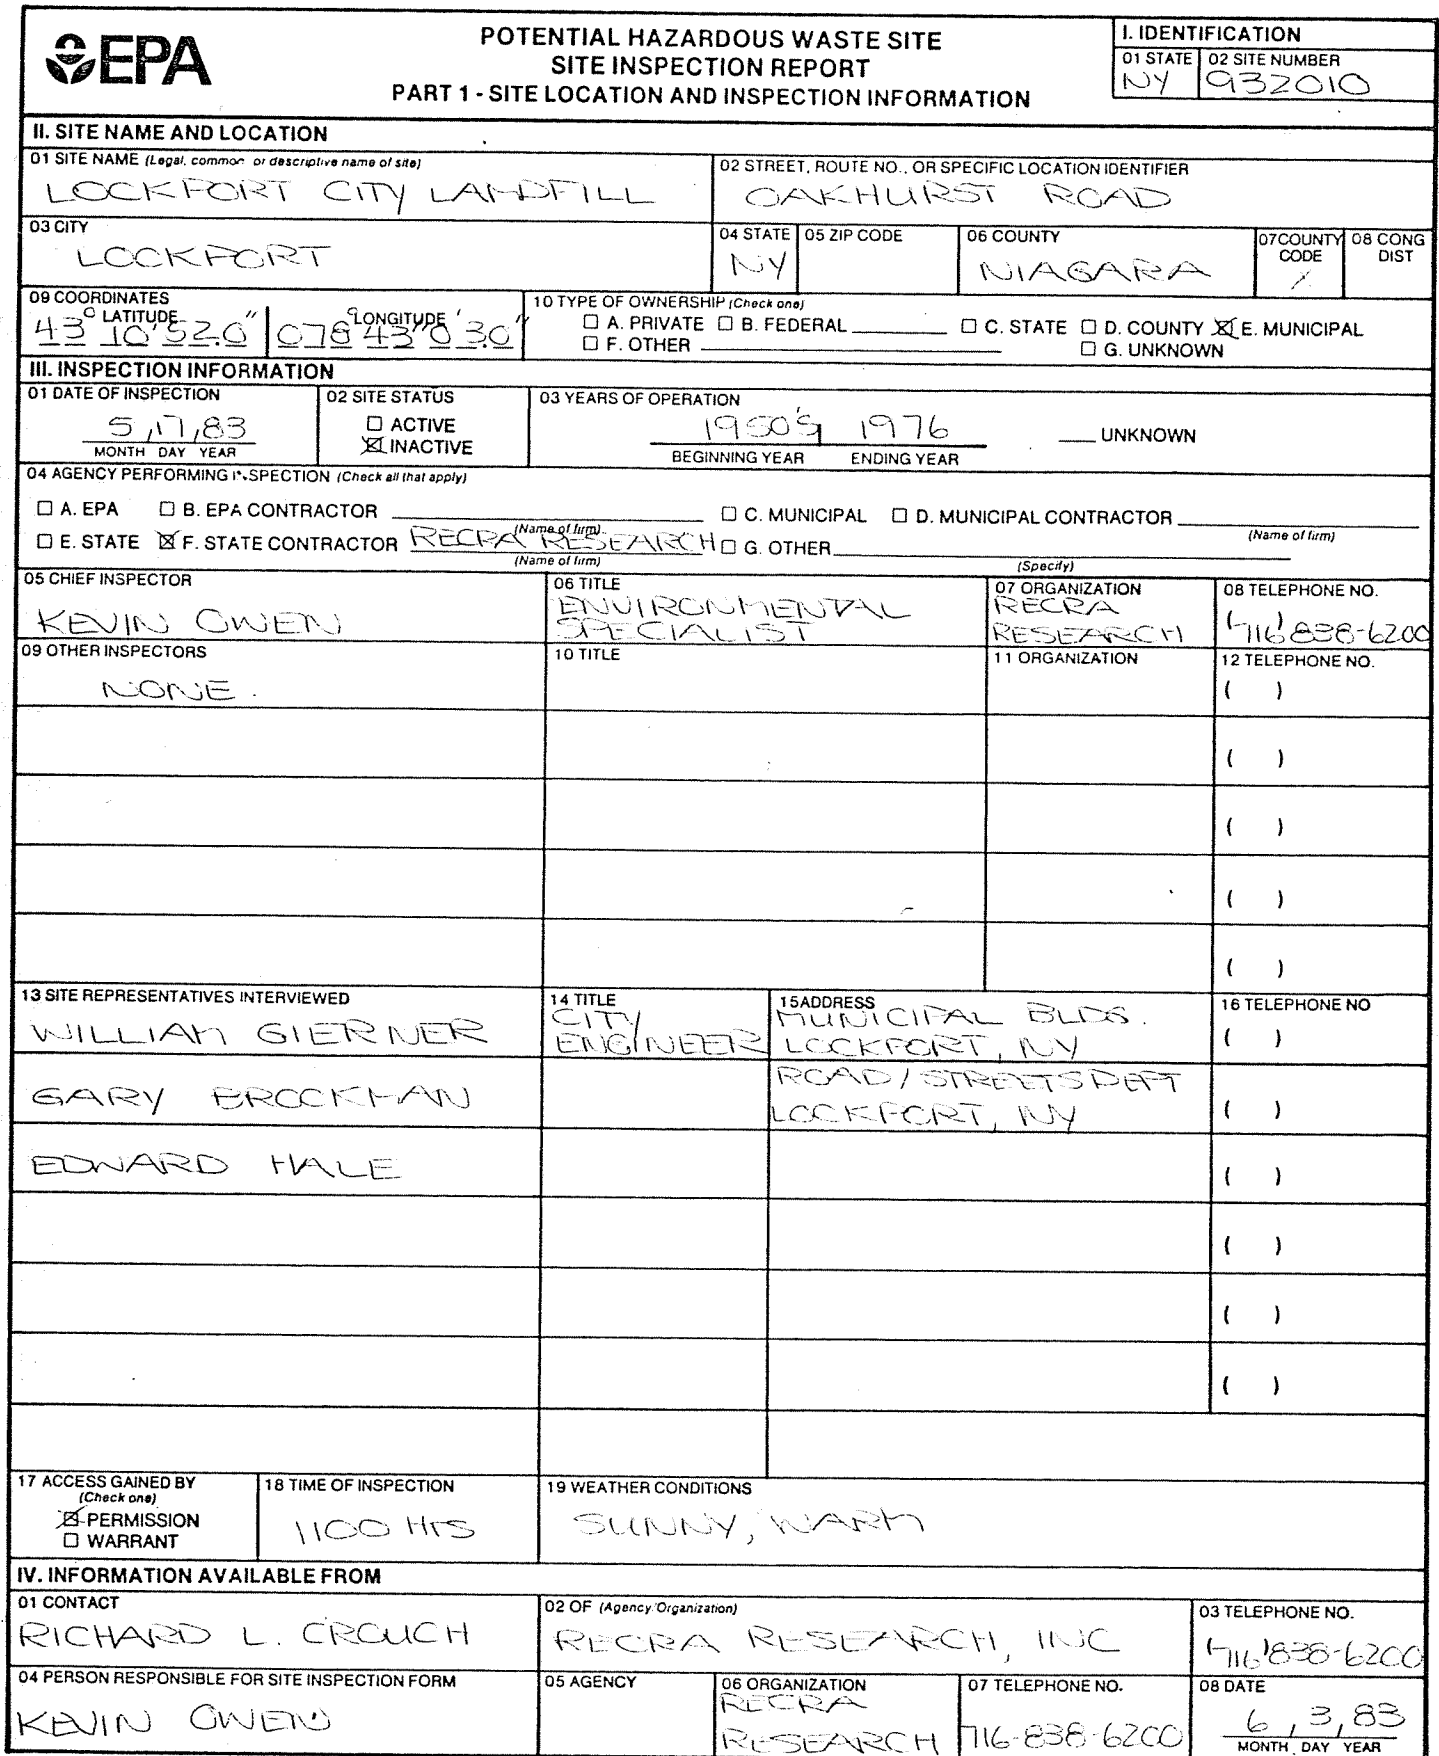 EPA
POTENTIAL HAZARDOUS WASTE SITE
SITE INSPECTION REPORT
PART 1 - SITE LOCATION AND INSPECTION INFORMATION
I. IDENTIFICATION
01 STATE 02 SITE NUMBER
NY 932010
II. SITE NAME AND LOCATION
01 SITE NAME (Legal, common, or descriptive name of site)
LOCKPORT CITY LANDFILL
02 STREET, ROUTE NO., OR SPECIFIC LOCATION IDENTIFIER
OAKHURST ROAD
03 CITY
LOCKPORT
04 STATE
NY
05 ZIP CODE
06 COUNTY
NIAGARA
07 COUNTY CODE
08 CONG DIST
09 COORDINATES
LATITUDE LONGITUDE
43° 10' 52.0" 078° 43' 03.0"
10 TYPE OF OWNERSHIP (Check one)
☐ A. PRIVATE ☐ B. FEDERAL ☐ C. STATE ☐ D. COUNTY ☒ E. MUNICIPAL
☐ F. OTHER ☐ G. UNKNOWN
III. INSPECTION INFORMATION
01 DATE OF INSPECTION
5,17,83
MONTH DAY YEAR
02 SITE STATUS
☐ ACTIVE
☒ INACTIVE
03 YEARS OF OPERATION
1950's 1976
BEGINNING YEAR ENDING YEAR
UNKNOWN
04 AGENCY PERFORMING INSPECTION (Check all that apply)
☐ A. EPA ☐ B. EPA CONTRACTOR ☐ C. MUNICIPAL ☐ D. MUNICIPAL CONTRACTOR
(Name of firm) (Name of firm)
☐ E. STATE ☒ F. STATE CONTRACTOR RECRA RESEARCH ☐ G. OTHER
(Name of firm) (Specify)
05 CHIEF INSPECTOR
KEVIN OWEN
06 TITLE
ENVIRONMENTAL
SPECIALIST
07 ORGANIZATION
RECRA
RESEARCH
08 TELEPHONE NO.
(716) 838-6200
09 OTHER INSPECTORS
NONE.
10 TITLE
11 ORGANIZATION
12 TELEPHONE NO.
( )
( )
( )
( )
( )
13 SITE REPRESENTATIVES INTERVIEWED
14 TITLE
15 ADDRESS
16 TELEPHONE NO
WILLIAM GIERNER
CITY
ENGINEER
MUNICIPAL BLDG.
LOCKPORT, NY
( )
GARY BROCKMAN
ROAD/STREETS DEPT
LOCKPORT, NY
( )
EDWARD HALE
( )
( )
( )
( )
17 ACCESS GAINED BY
(Check one)
☒ PERMISSION
☐ WARRANT
18 TIME OF INSPECTION
1100 Hrs
19 WEATHER CONDITIONS
SUNNY, WARM
IV. INFORMATION AVAILABLE FROM
01 CONTACT
RICHARD L. CROUCH
02 OF (Agency/Organization)
RECRA RESEARCH, INC
03 TELEPHONE NO.
(716) 838-6200
04 PERSON RESPONSIBLE FOR SITE INSPECTION FORM
KEVIN OWEN
05 AGENCY
06 ORGANIZATION
RECRA
RESEARCH
07 TELEPHONE NO.
716-838-6200
08 DATE
6,3,83
MONTH DAY YEAR